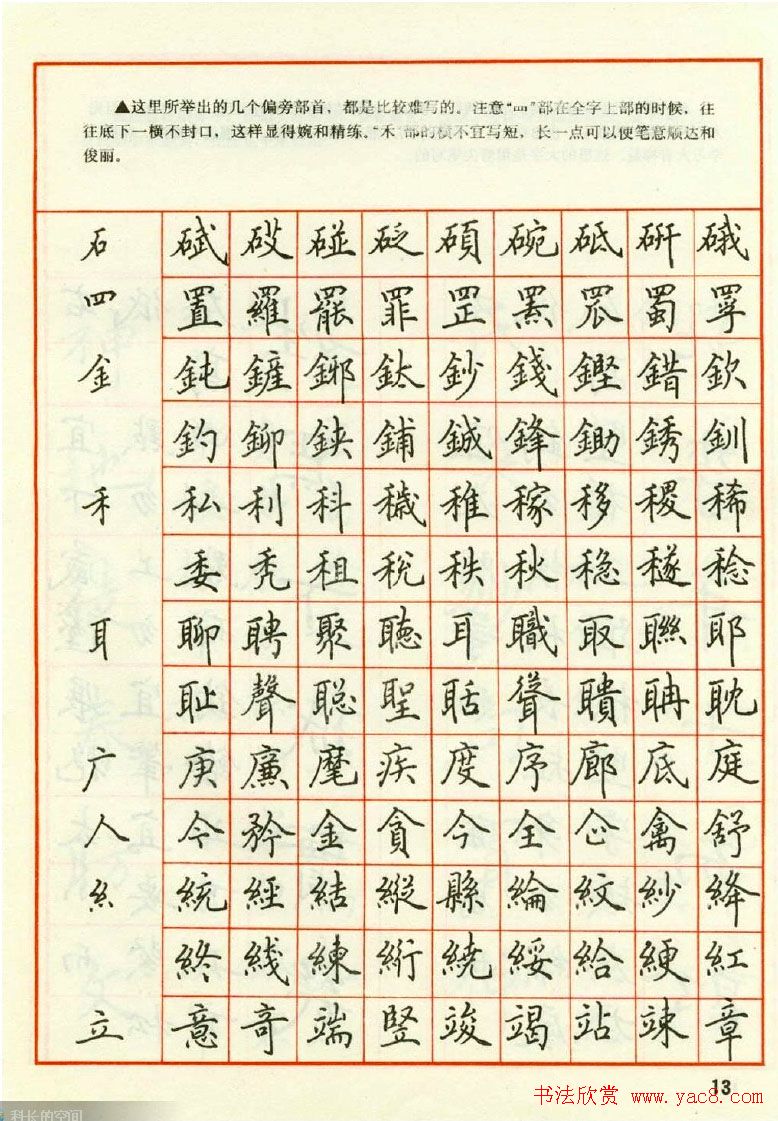 ▲这里所举出的几个偏旁部首，都是比较难写的。注意“罒”部在全字上部的时候，往
往底下一横不封口，这样显得婉和精练。“禾”部的横不宜写短，长一点可以使笔意顺达和
俊丽。
石 碔 砹 碰 砭 碩 碗 砥 硏 硪
罒 置 羅 罷 罪 罡 罴 罛 蜀
金 鈍 鏟 鎁 鈦 鈔 錢 鏗 錯 欽
釣 鉚 鋏 鋪 鋮 鋒 鋤 銹 釧
禾 私 利 科 穢 稚 稼 移 稷 稀
委 秃 租 税 秩 秋 稳 稔
耳 聊 聘 聚 聴 耳 職 取 聯 耶
耻 聲 聪 聖 聒 聳 聵 聃 耽
广 庚 廉 麾 疾 度 序 廊 底 庭
人 令 矜 金 貪 今 全 企 禽 舒
糹 統 經 結 縱 縣 綸 紋 紗 絳
終 綫 練 絎 繞 綏 給 綆 紅
立 意 奇 端 竖 竣 竭 站 竦 章
13
书法欣赏 www.yac8.com
科长的空间